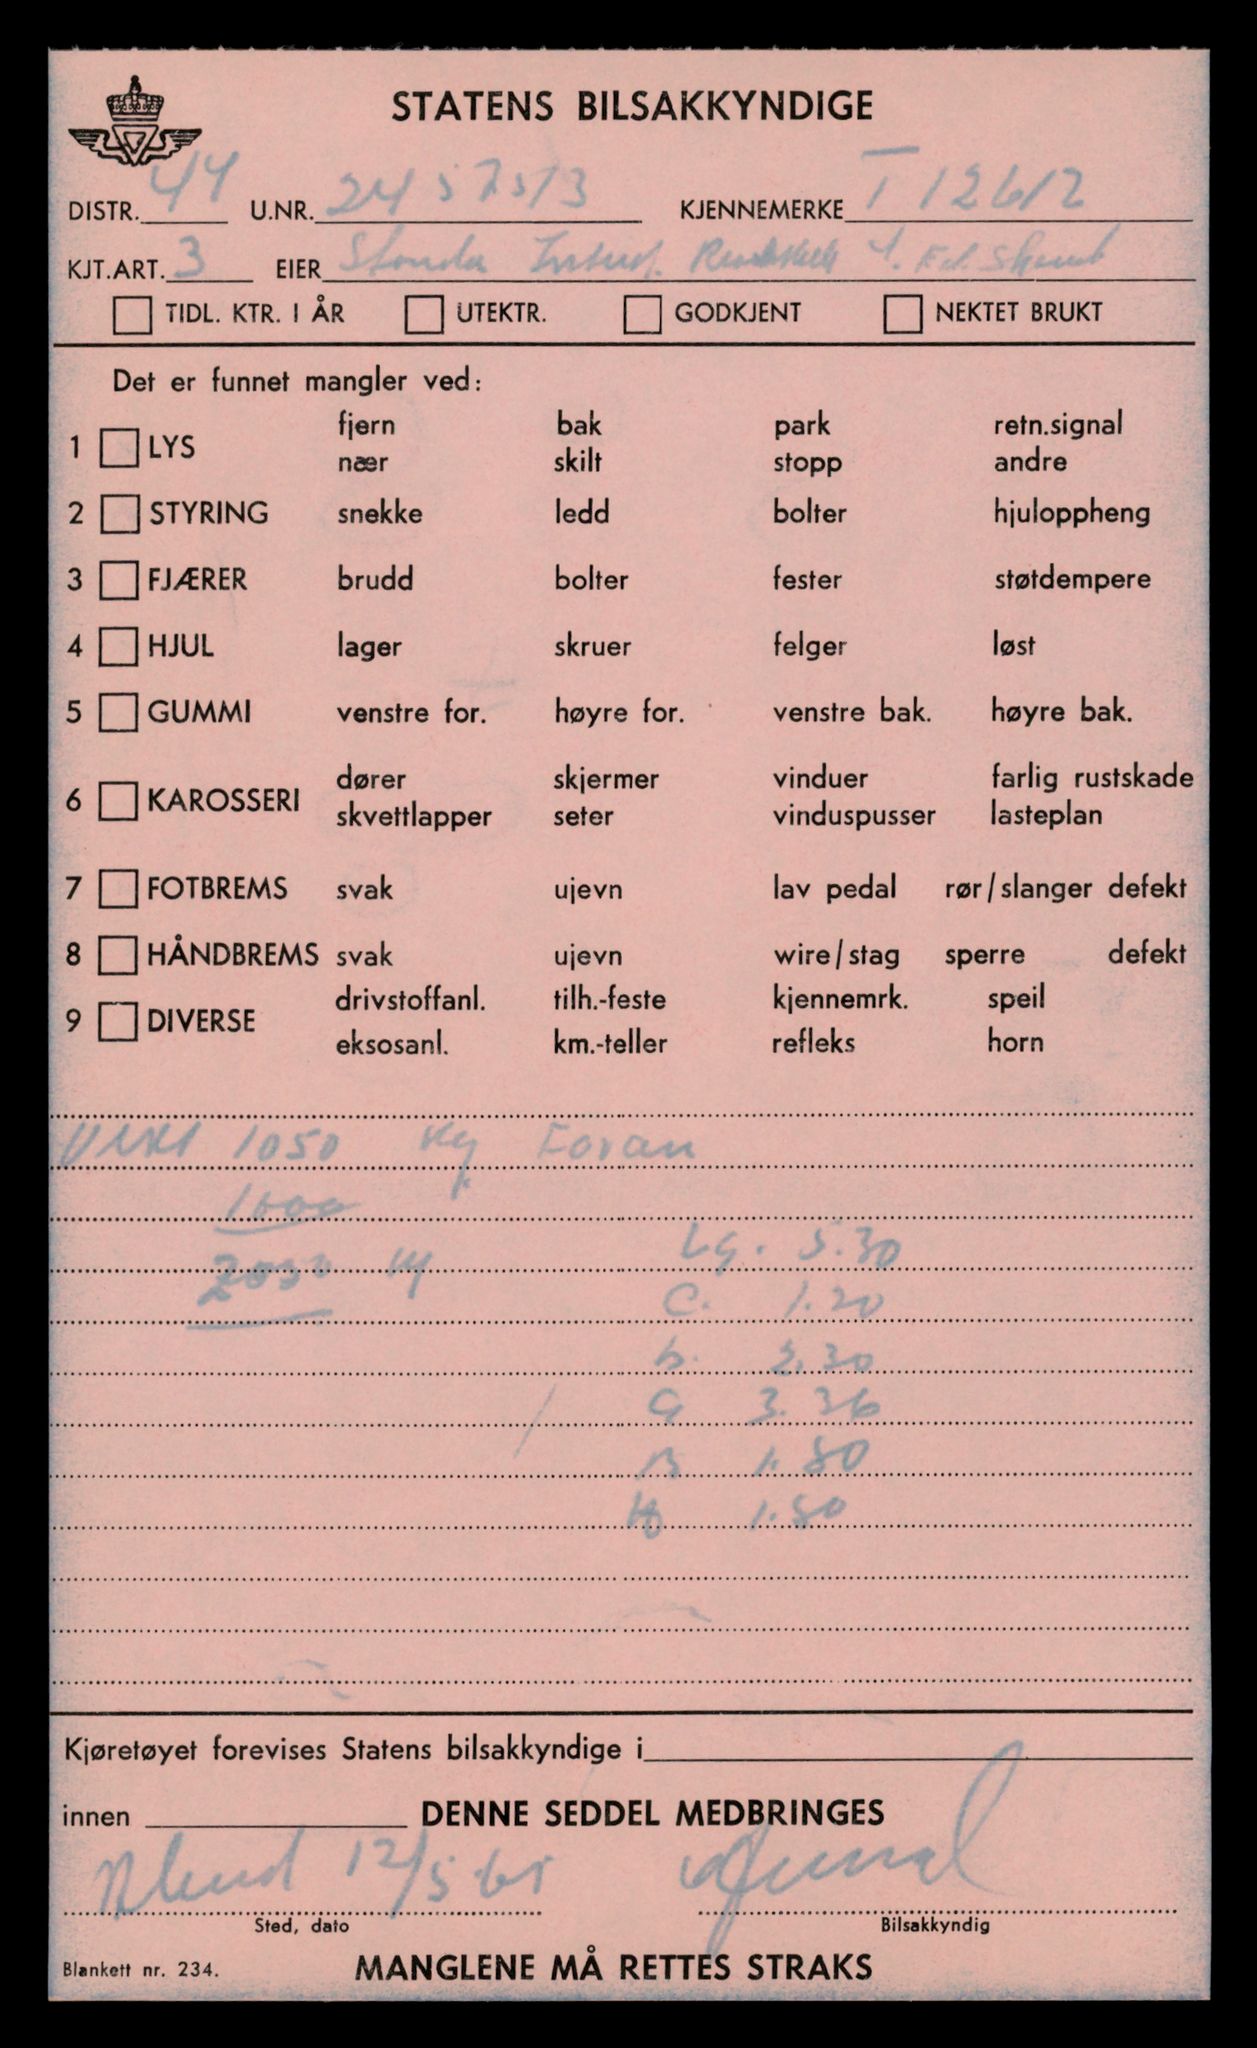 STATENS BILSAKKYNDIGE
DISTR. 44 U.NR. 2457513 KJENNEMERKE T 12612
KJT.ART. 3 EIER
TIDL. KTR. I ÅR UTEKTR. GODKJENT NEKTET BRUKT
Det er funnet mangler ved:
fjern bak park retn.signal
1 LYS
nær skilt stopp andre
2 STYRING snekke ledd bolter hjuloppheng
3 FJÆRER brudd bolter fester støtdempere
4 HJUL lager skruer felger løst
5 GUMMI venstre for. høyre for. venstre bak. høyre bak.
dører skjermer vinduer farlig rustskade
6 KAROSSERI
skvettlapper seter vinduspusser lasteplan
7 FOTBREMS svak ujevn lav pedal rør/slanger defekt
8 HÅNDBREMS svak ujevn wire/stag sperre defekt
drivstoffanl. tilh.-feste kjennemrk. speil
9 DIVERSE
eksosanl. km.-teller refleks horn
Vekt 1050 kg Foran
1000
2050
Lg. 5.30
C. 1.20
b. 2.30
G 3.36
B 1.80
H 1.80
Kjøretøyet forevises Statens bilsakkyndige i
innen DENNE SEDDEL MEDBRINGES
12/5-65
Sted, dato Bilsakkyndig
Blankett nr. 234. MANGLENE MÅ RETTES STRAKS